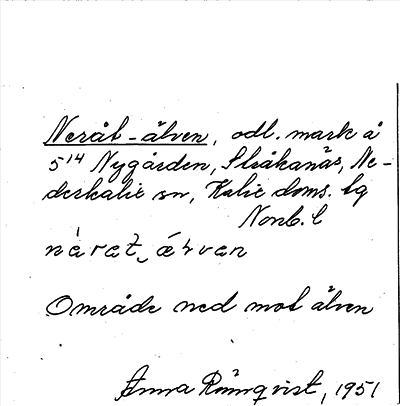 Neråt-älven, odl. mark å
5¹⁴ Nygården, Stråkanäs, Ne-
derkalix sn, Kalix doms. lg
Norrb. l
nèrat‿ɛ́ɽvan
Område ned mot älven
Anna Rönnqvist, 1951